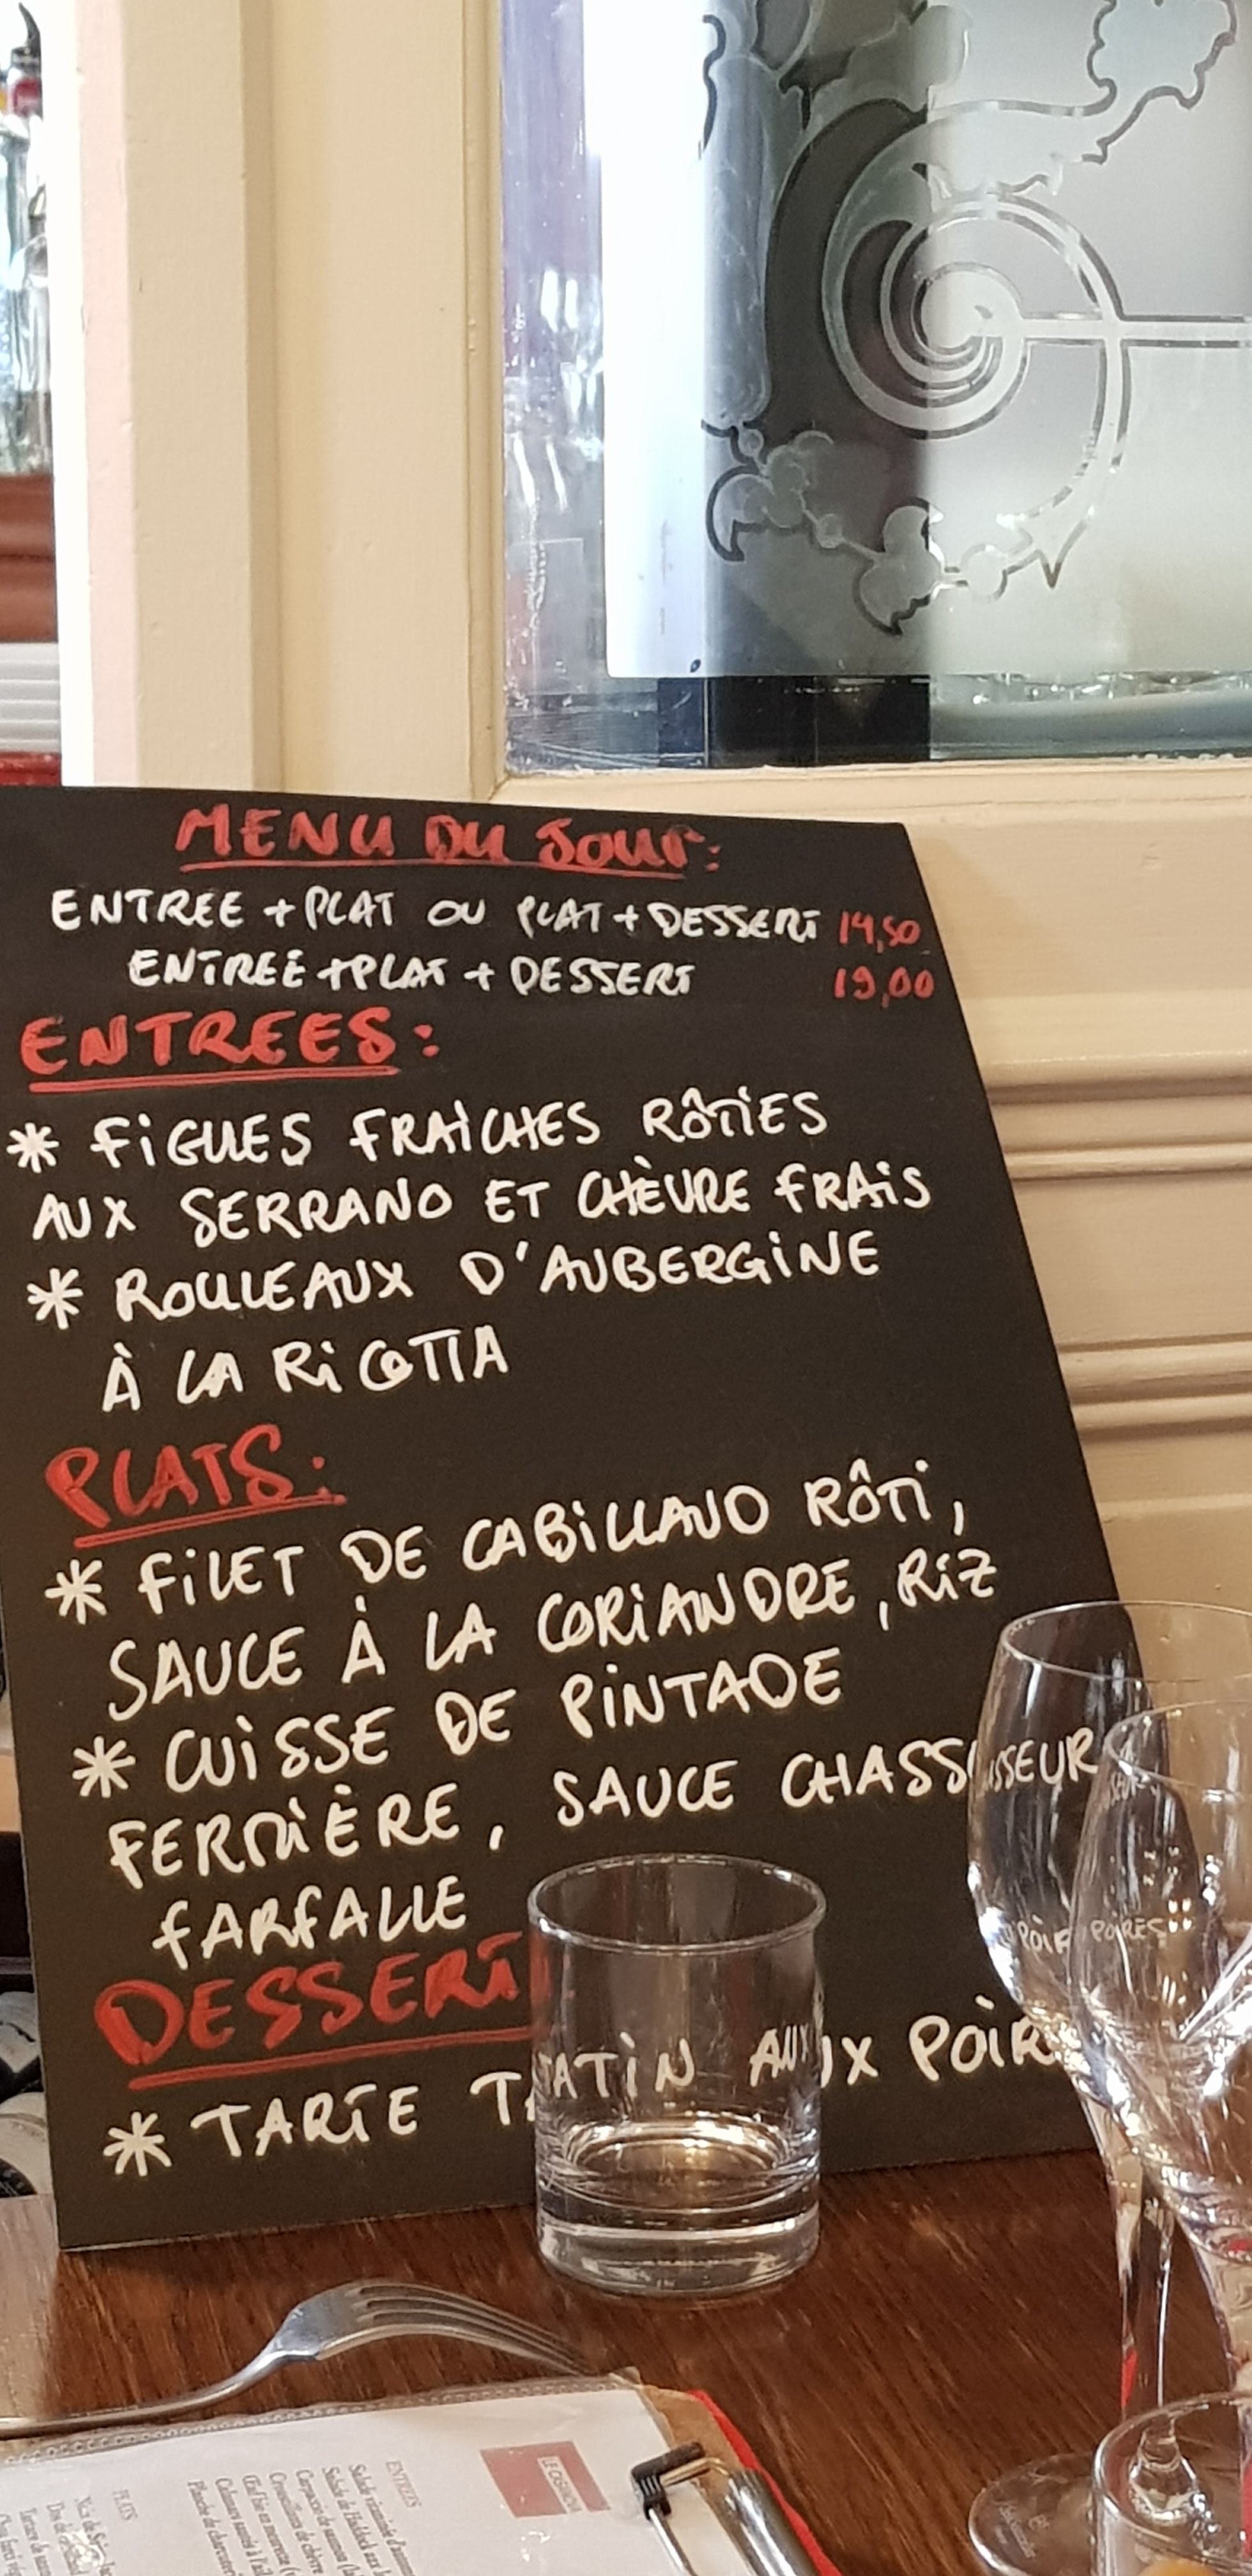 MENU DU JOUR:
ENTREE + PLAT OU PLAT + DESSERT 14,50
ENTREE + PLAT + DESSERT 19,00
ENTREES:
* FIGUES FRAICHES RÔTIES
AUX SERRANO ET CHÈVRE FRAIS
* ROULEAUX D'AUBERGINE
À LA RICOTTA
PLATS:
* FILET DE CABILLAUD RÔTI,
SAUCE À LA CORIANDRE, RIZ
* CUISSE DE PINTADE
FERMIÈRE, SAUCE CHASSEUR
FARFALLE
DESSERT
* TARTE TATIN AUX POIRES
ENTREES
PLATS